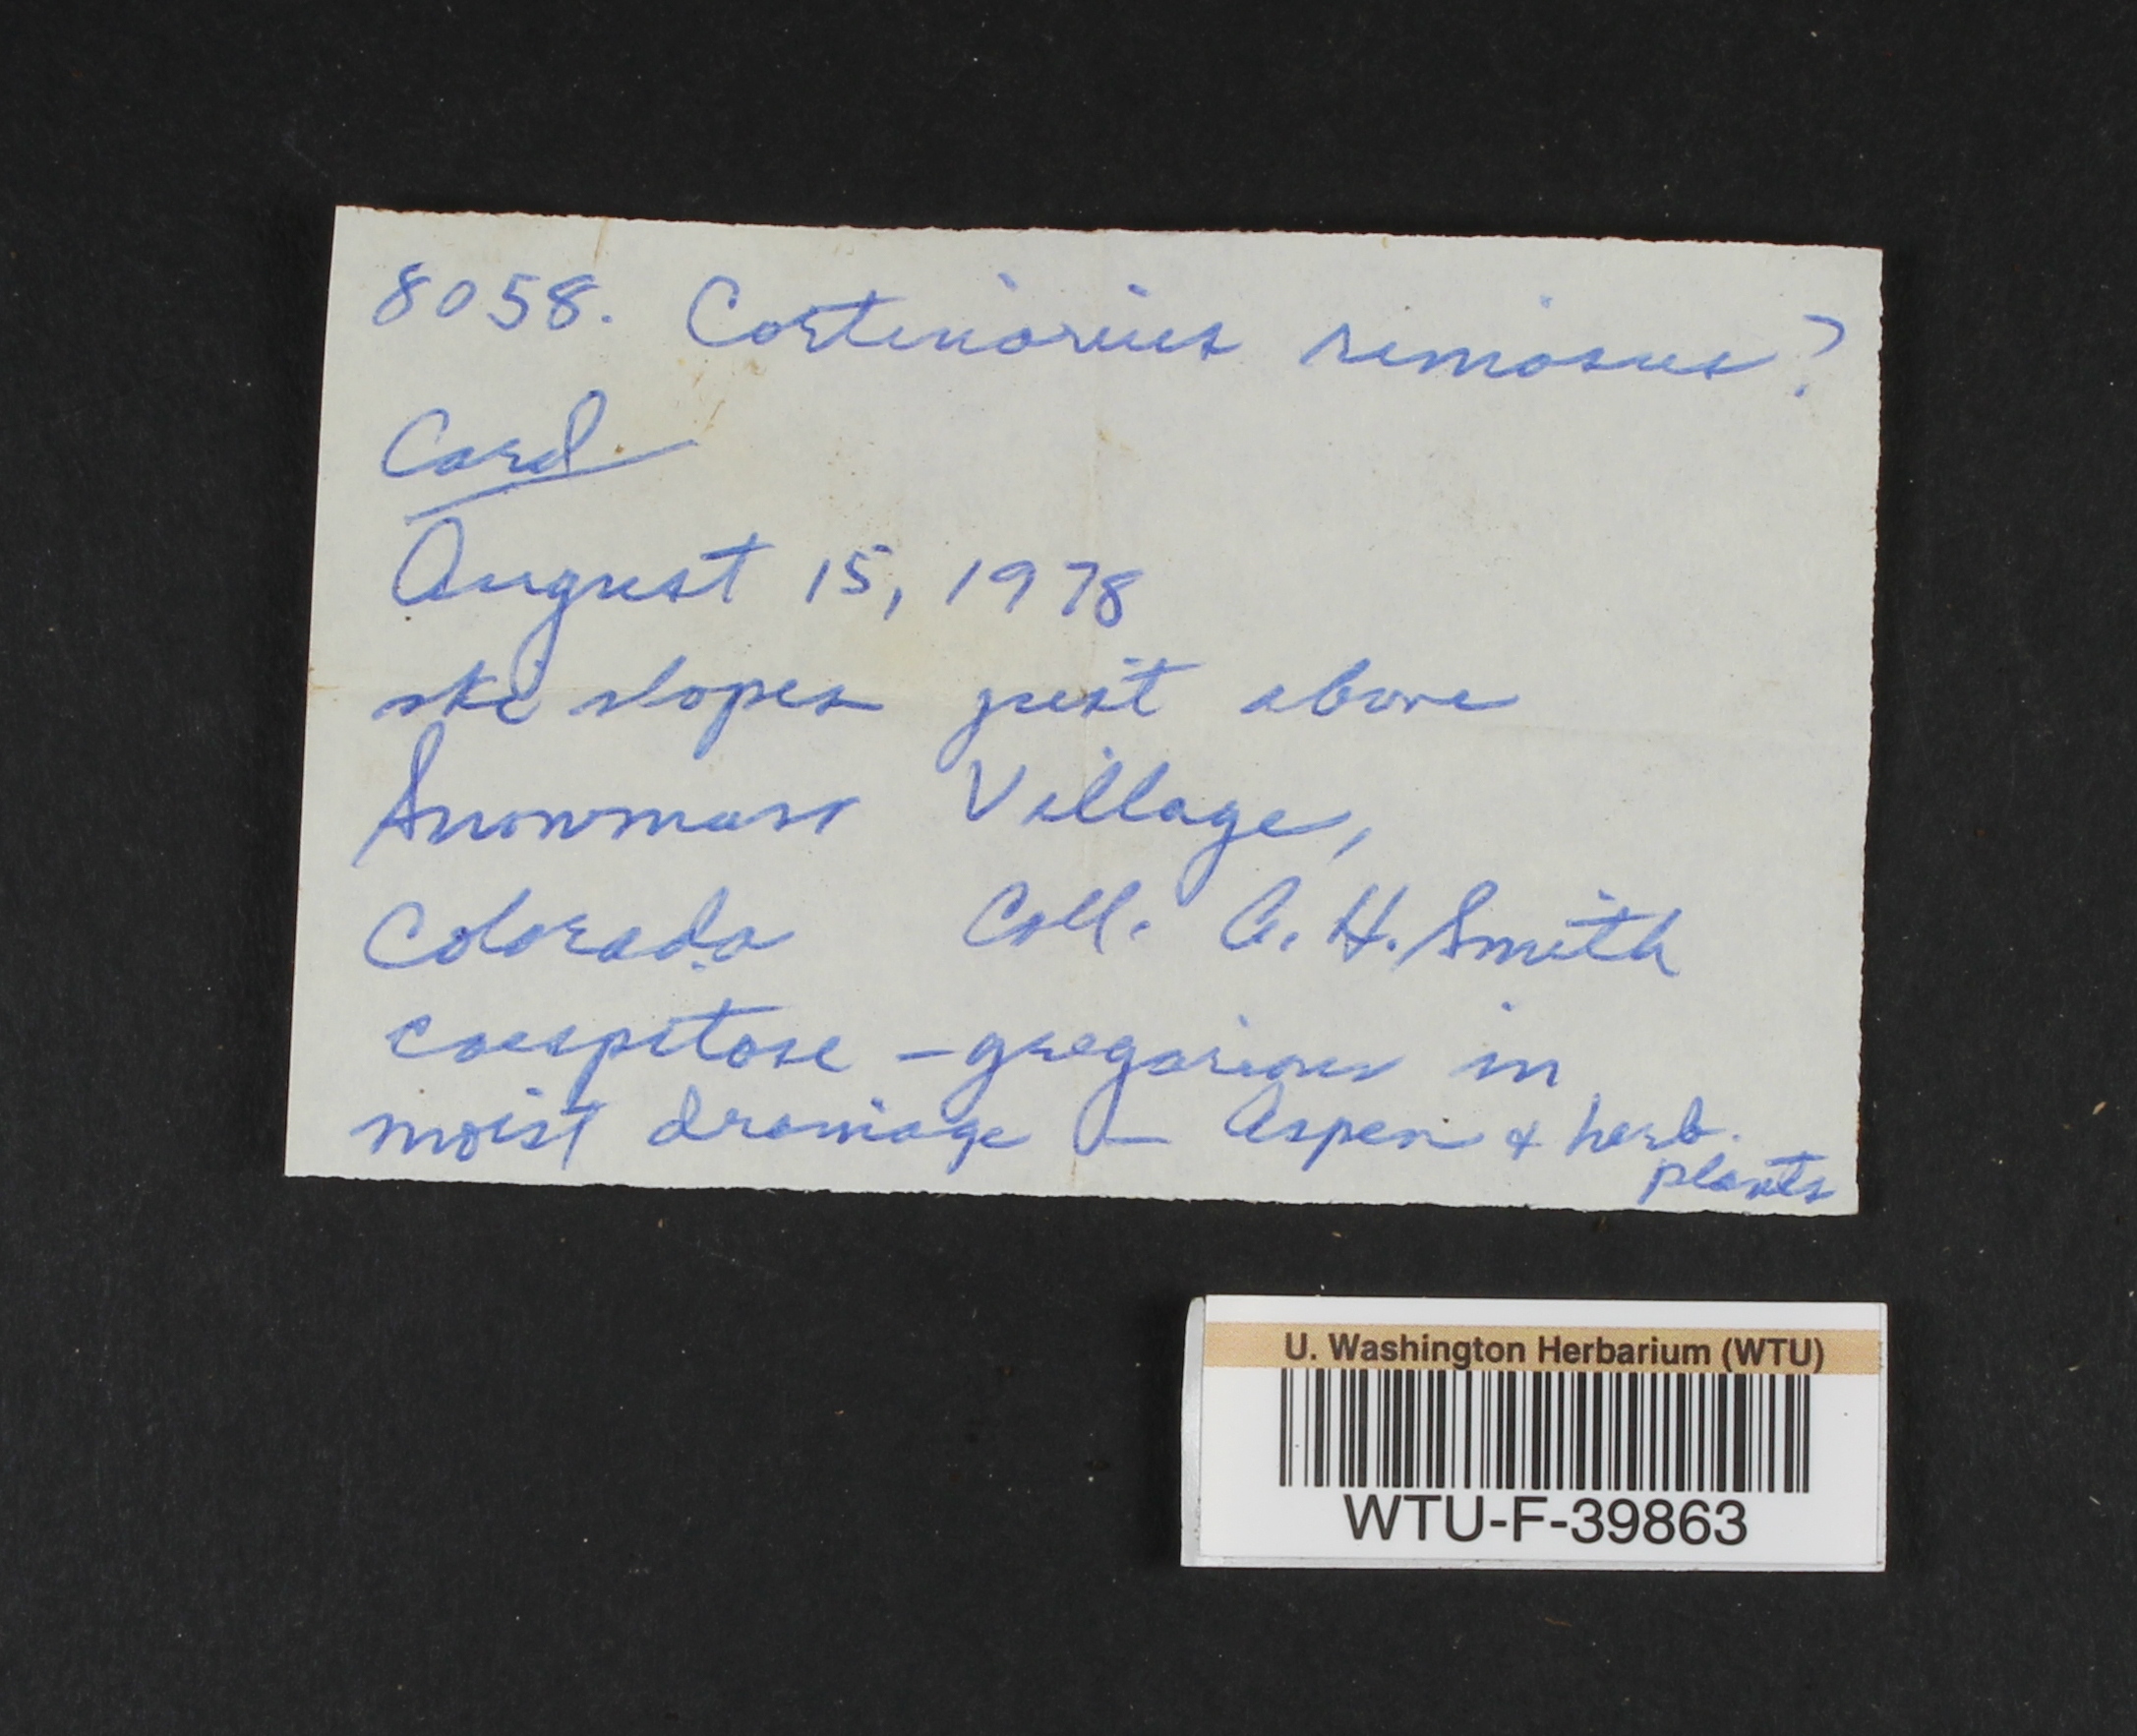 8058. Cortinarius rimosus?
Card
August 15, 1978
ski slopes just above
Snowmass Village,
Colorado Coll. A. H. Smith
caespitose - gregarious in
moist drainage — Aspen & herb.
plants
U. Washington Herbarium (WTU)
WTU-F-39863